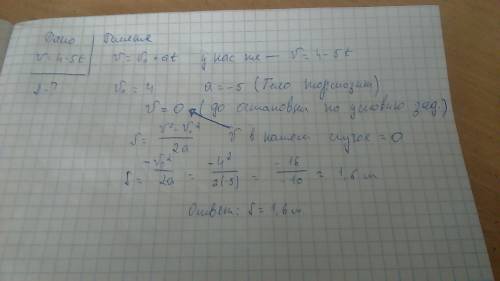 Дано Решение
V = 4-5t V = V₀ + at у нас же — V = 4-5t
S-? V₀ = 4 a = -5 (Тело тормозит)
V = 0 (до остановки по условию зад.)
S = V² - V₀² / 2a V в нашем случае = 0
S = -V₀² / 2a = -4² / 2(-5) = -16 / -10 = 1,6 м
Ответ: S = 1,6 м